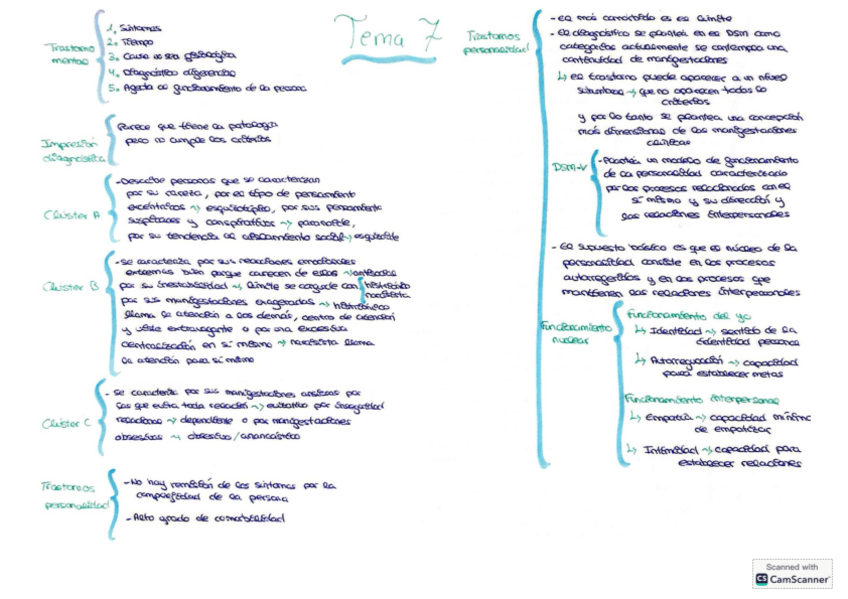 Tema 7
Trastorno
mental
1. Síntomas
2. Tiempo
3. Causa no sea fisiológica
4. Diagnóstico diferencial
5. Afecta al funcionamiento de la persona
Impresión
diagnóstica
Parece que tiene la patología
pero no cumple los criterios
Cluster A
- Describe personas que se caracterizan
por su rareza, por el tipo de pensamiento
excéntricos → esquizotípico, por sus pensamientos
suspicaces y conspirativos → paranoide,
por su tendencia al aislamiento social → esquizoide
Cluster B
- Se caracteriza por sus reacciones emocionales
extremas bien porque carecen de ellas → antisocial
por su inestabilidad → límite se confunde con histriónico
narcisista
por sus manifestaciones exageradas → histriónico
llama la atención a los demás, centro de atención
y viste extravagante o por una excesiva
centralización en sí mismo → narcisista llama
la atención para sí mismo
Cluster C
- Se caracteriza por sus manifestaciones ansiosas por
las que evita toda relación → evitativo por inseguridad
relacional → dependiente o por manifestaciones
obsesivas → obsesivo/anancástico
Trastornos
personalidad
- No hay remisión de los síntomas por la
complejidad de la persona
- Alto grado de comorbilidad
Trastornos
personalidad
- El más conocido es el límite
- El diagnóstico se plantea en el DSM como
categorías actualmente se contempla una
continuidad de manifestaciones
↳ el trastorno puede aparecer a un nivel
subumbral → que no aparecen todos los
criterios
y por lo tanto se plantea una concepción
más dimensional de las manifestaciones
clínicas
DSM-V
- Plantea un modelo de funcionamiento
de la personalidad caracterizado
por los procesos relacionados con el
sí mismo y su dirección y
las relaciones interpersonales
- El supuesto básico es que el núcleo de la
personalidad consiste en los procesos
autorreferidos y en los procesos que
mantienen las relaciones interpersonales
Funcionamiento
nuclear
Funcionamiento del yo
↳ Identidad → sentido de la
identidad personal
↳ Autorregulación → capacidad
para establecer metas
Funcionamiento interpersonal
↳ Empatía → capacidad mínima
de empatizar
↳ Intimidad → capacidad para
establecer relaciones
Scanned with
CS CamScanner